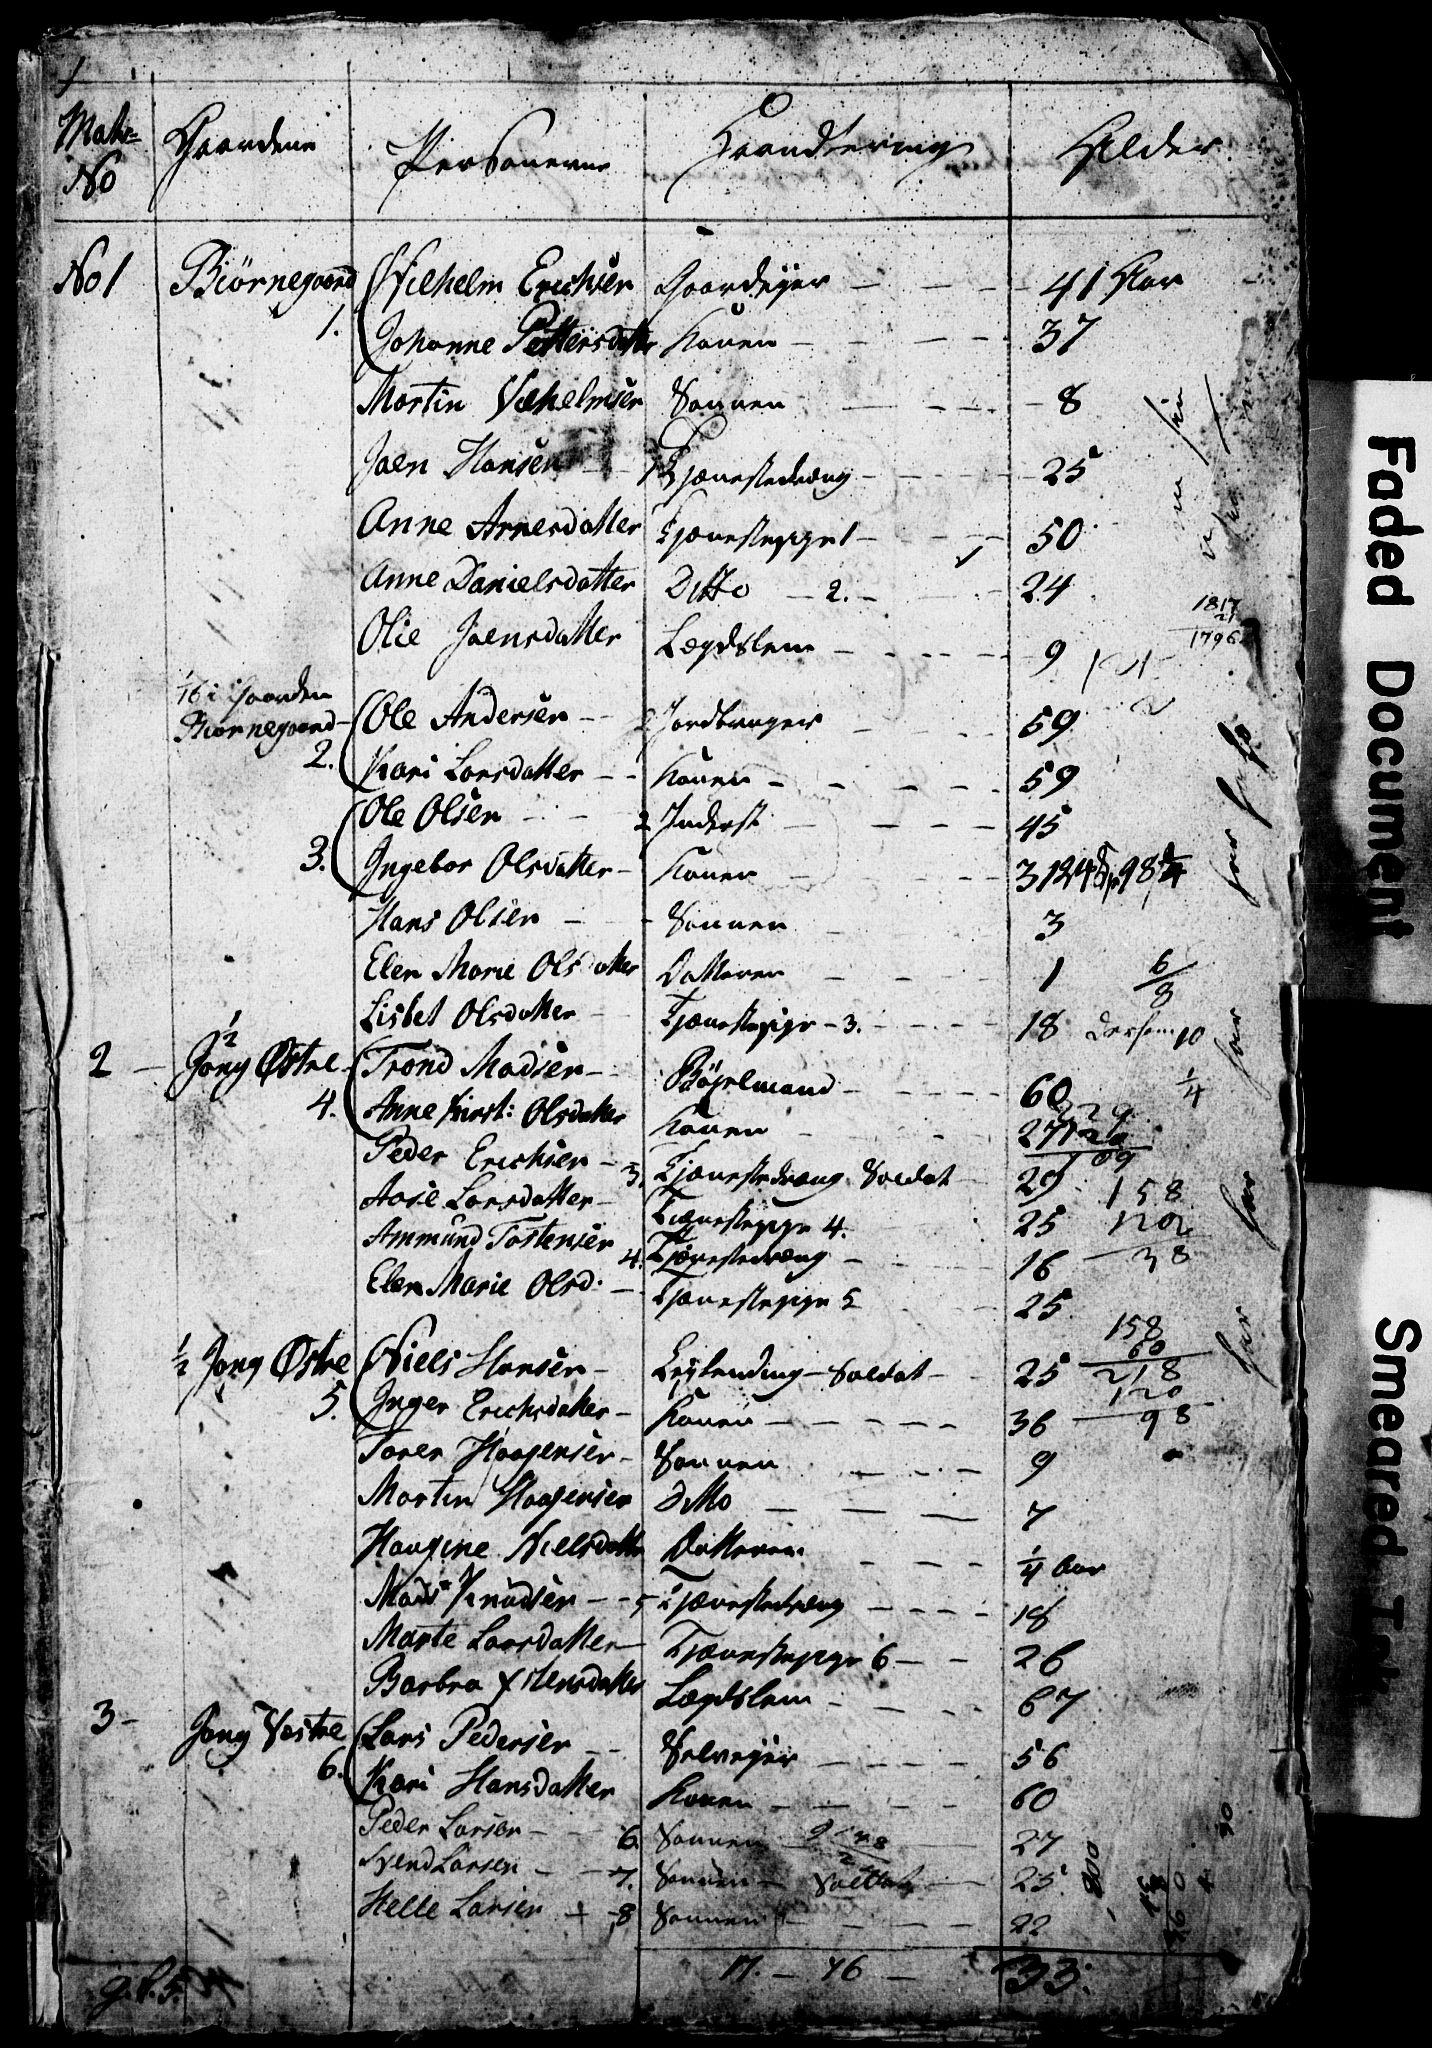 Matr= No Gaardene Personerne Haandtering Alder
No 1 Biørnegaard Wilhelm Erichsen Gaardejer 41 Aar
1. Johanne Pettersdatter Konen 37
Martin Wilhelmsen Sønnen 8
Joen Hansen 1 Tjænestedræng 25
Anne Arnesdatter Tjænestepige 1 50
Anne Danielsdatter Ditto 2. 24
Olie Joensdatter Lægdslem 9
1817
21
1796
1/16 i Gaarden
Biørnegaard Ole Andersen Jordbruger 59
2. Kari Larsdatter Konen 59
Ole Olsen 2 Inderst 45
3. Ingebor Olsdatter Konen 31
Hans Olsen Sønnen 3
Elen Marie Olsdatter Datteren 1
6/8
Lisbet Olsdatter Tjænestepige 3. 18
2 1/2 Jong Østre Trond Madsen Bøgselmand 60
1/4
4. Anne Kirst: Olsdatter Konen 27
Peder Erichsen 3. Tjænestedræng Soldat 29
Aase Larsdatter Tjænestepige 4. 25
Ammund Tostensen 4. Tjænestedræng 16
Elen Marie Olsd: Tjænestepige 5 25
158
120
38
1/2 Jong Østre Niels Hansen Leylending Soldat 25
5. Inger Erichsdatter Konen 36
158
60
218
120
98
Torer Haagensen Sønnen 9
Morten Haagensen Ditto 7
Haagine Nielsdatter Datteren 1/4 Aar
Mads Knudsen 5 Tjænestedræng 18
Marte Larsdatter Tjænestepige 6 26
Barbra Lægdslem 67
3 Jong Vestre Lars Pedersen Selvejer 56
6. Kari Hansdatter Konen 60
Peder Larsen 6. Sønnen 27
Svend Larsen 7. Sønnen Soldat 25
Helle Larsen 8 Sønnen 22
17. 46 33.
Faded Document
Smeared Ink